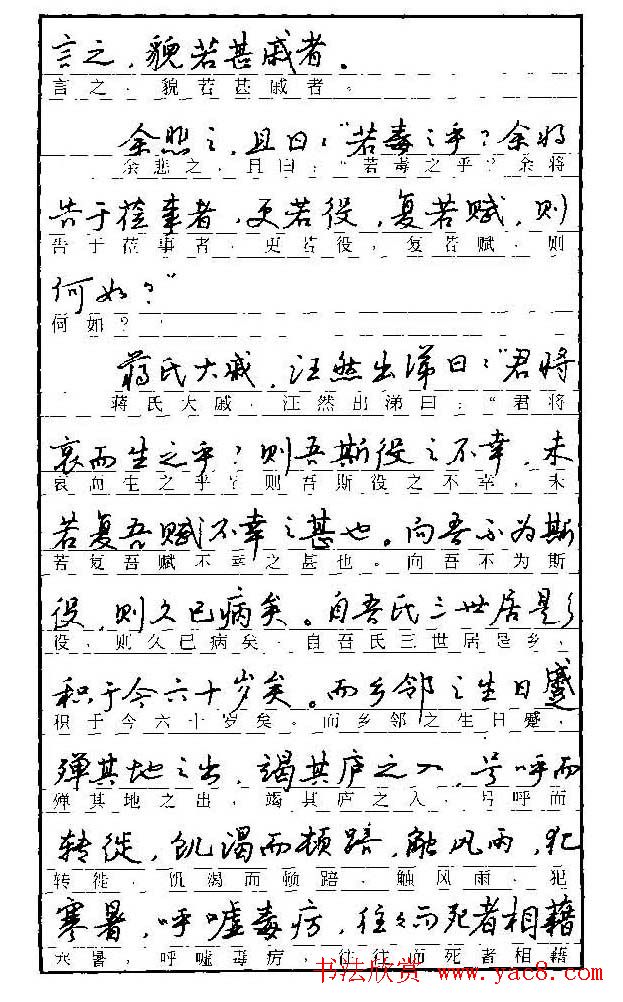 言之，貌若甚戚者。
言之，貌若甚戚者。
余悲之，且曰：“若毒之乎？余将
余悲之，且曰：“若毒之乎？余将
告于莅事者，更若役，复若赋，则
告于莅事者，更若役，复若赋，则
何如？”
何如？
蒋氏大戚，汪然出涕曰：“君将
蒋氏大戚，汪然出涕曰：“君将
哀而生之乎？则吾斯役之不幸，未
哀而生之乎？则吾斯役之不幸，未
若复吾赋不幸之甚也。向吾不为斯
若复吾赋不幸之甚也。向吾不为斯
役，则久已病矣。自吾氏三世居是乡
役，则久已病矣。自吾氏三世居是乡，
积于今六十岁矣。而乡邻之生日蹙
积于今六十岁矣。而乡邻之生日蹙，
殚其地之出，竭其庐之入，号呼而
殚其地之出，竭其庐之入，号呼而
转徙，饥渴而顿踣，触风雨，犯
转徙，饥渴而顿踣，触风雨，犯
寒暑，呼嘘毒疠，往々而死者相藉
寒暑，呼嘘毒疠，往往而死者相藉
书法欣赏 www.yac8.com